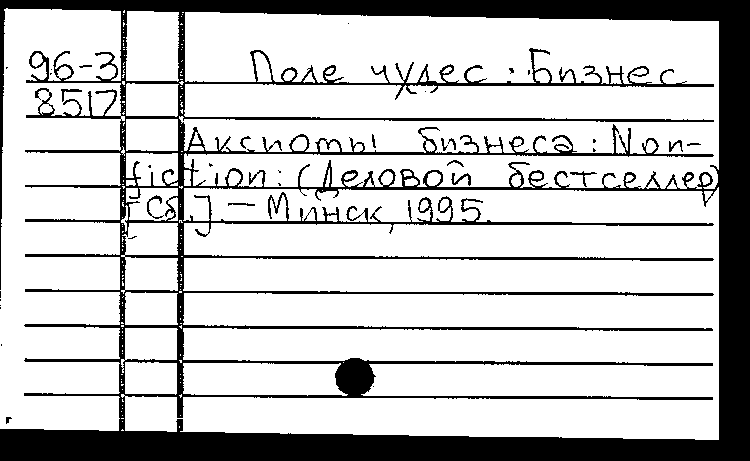 96-3 Поле чудес : Бизнес
8517
Аксиомы бизнеса : Non-
fiction : (Деловой бестселлер)
[Сб.]. — Минск, 1995.